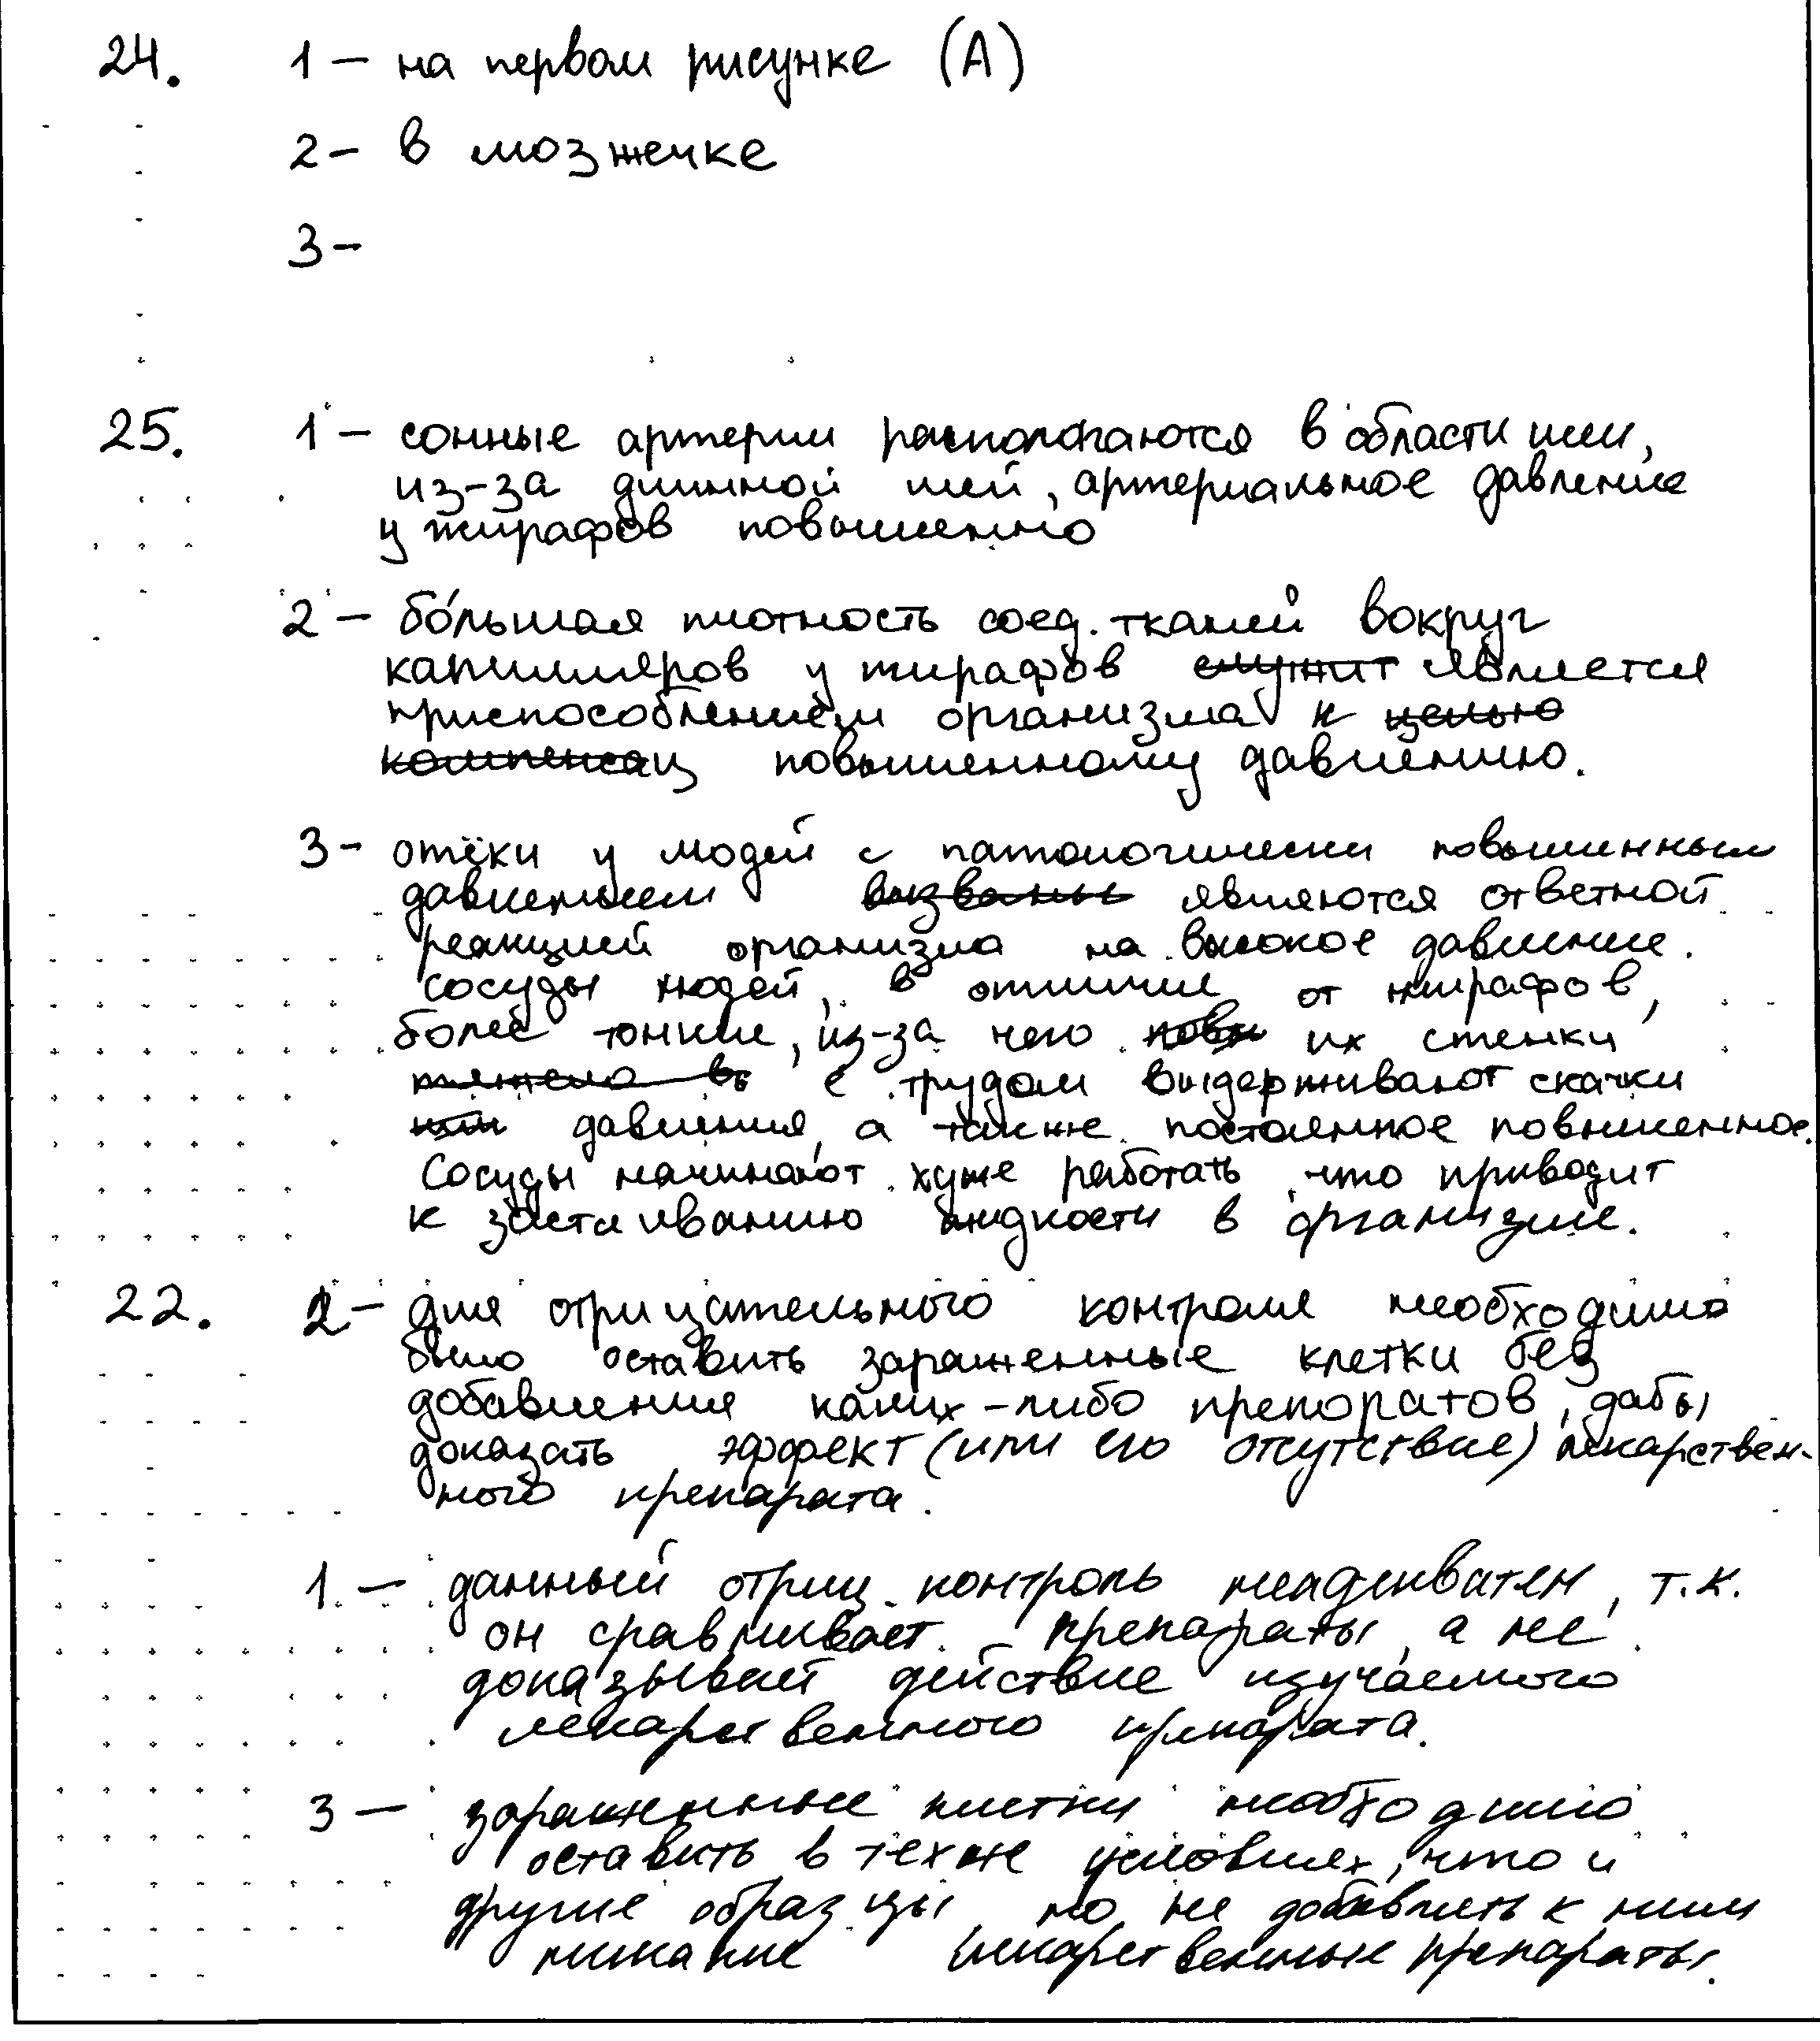 24. 1 – на первом рисунке (А)
2 – в мозжечке
3 –
25. 1 – сонные артерии располагаются в области шеи,
из-за длинной шей, артериальное давление
у жирафов повышенно
2 – бо́льшая плотность соед. тканей вокруг
капилляров у жирафов служит является
приспособлением организма к целью
компенсац повышенному давлению.
3 – отёки у людей с патологически повышенным
давлением вызваны являются ответной
реакцией организма на высокое давление.
сосуды людей, в отличие от жирафов,
более тонкие, из-за чего их стенки
тяжело вы с трудом выдерживают скачки
давления, а также постоянное повышенное.
Сосуды начинают хуже работать, что приводит
к застаиванию жидкости в организме.
22. 2 – для отрицательного контроля необходимо
было оставить зараженные клетки без
добавления каких-либо препоратов, дабы
доказать эффект (или его отсутствие) лекарствен-
ного препарата.
1. – данный отриц. контроль неадекватен, т.к.
он сравнивает препараты, а не
доказывает действие изучаемого
лекарственного препората.
3 – зараженные клетки необходимо
оставить в тех же условиях, что и
другие образцы, но не добавлять к ним
никакие лекарственные препараты.